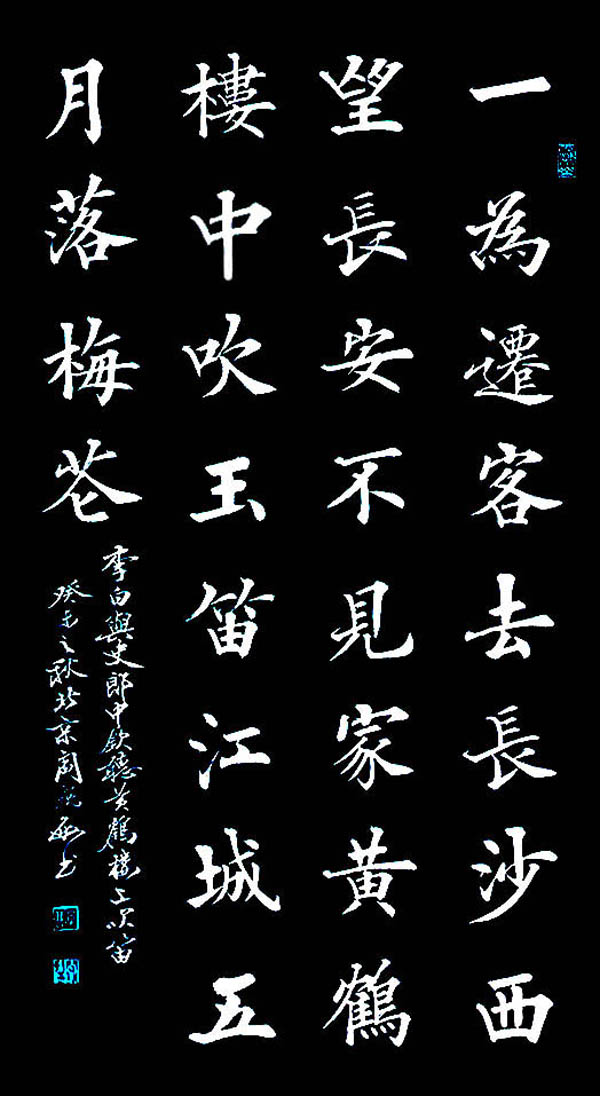 一為遷客去長沙西
望長安不見家黃鶴
樓中吹玉笛江城五
月落梅花
李白與史郎中欽聽黃鶴樓上吹笛
癸未之秋北京周书